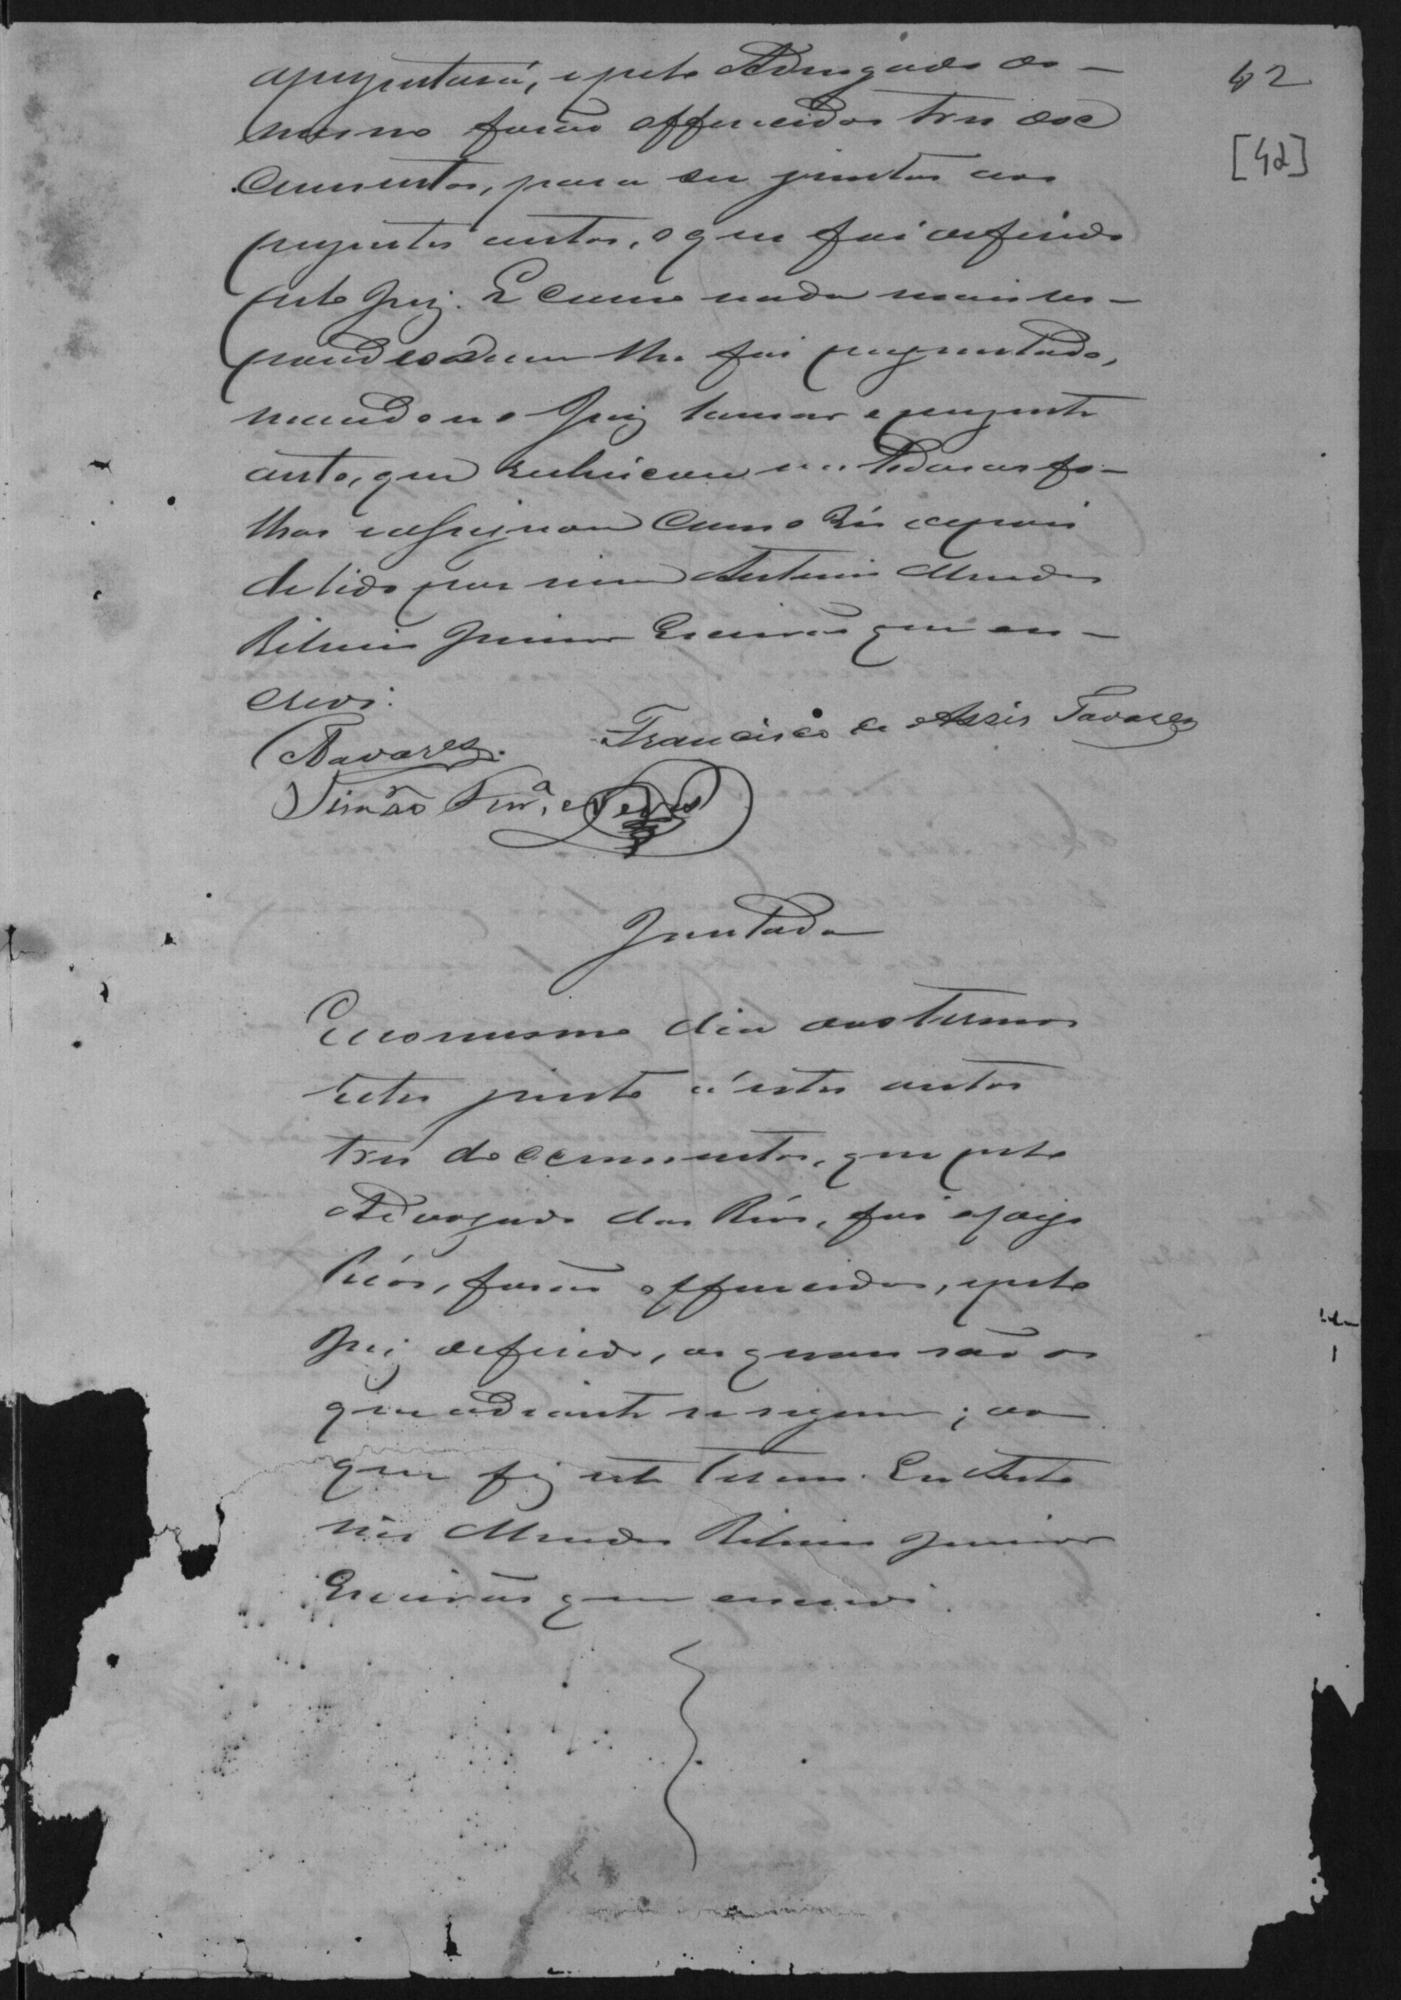 42
[42]
apresentará, e pelo Advogado do
mesmo forão offerecidos tres doc
cumentos, para ser juntos aos
presentes autos, o que foi deferido
pelo Juiz. E como nada mais res-
pondeo e nem lhe foi perguntado,
mandou o Juiz lavrar o presente
auto, que rubricou em todas as fo-
lhas e assignou com o Réo depois
de lido por mim Antonio Mendes
Ribeiro Junior Escrivão que es-
crevi.
Tavares. Francisco de Assis Tavares
Simão Ferrª. e Neves
Juntada
E no mesmo dia
junto á estes autos
tres documentos, que pelo
Advogado dos Réos,
Réos, forão offerecidos, e pelo
Juiz deferido, os quaes são os
que adiante se seguem; do
que fiz este termo. Eu Anto
nio Mendes Ribeiro Junior
Escrivão que escrevi.